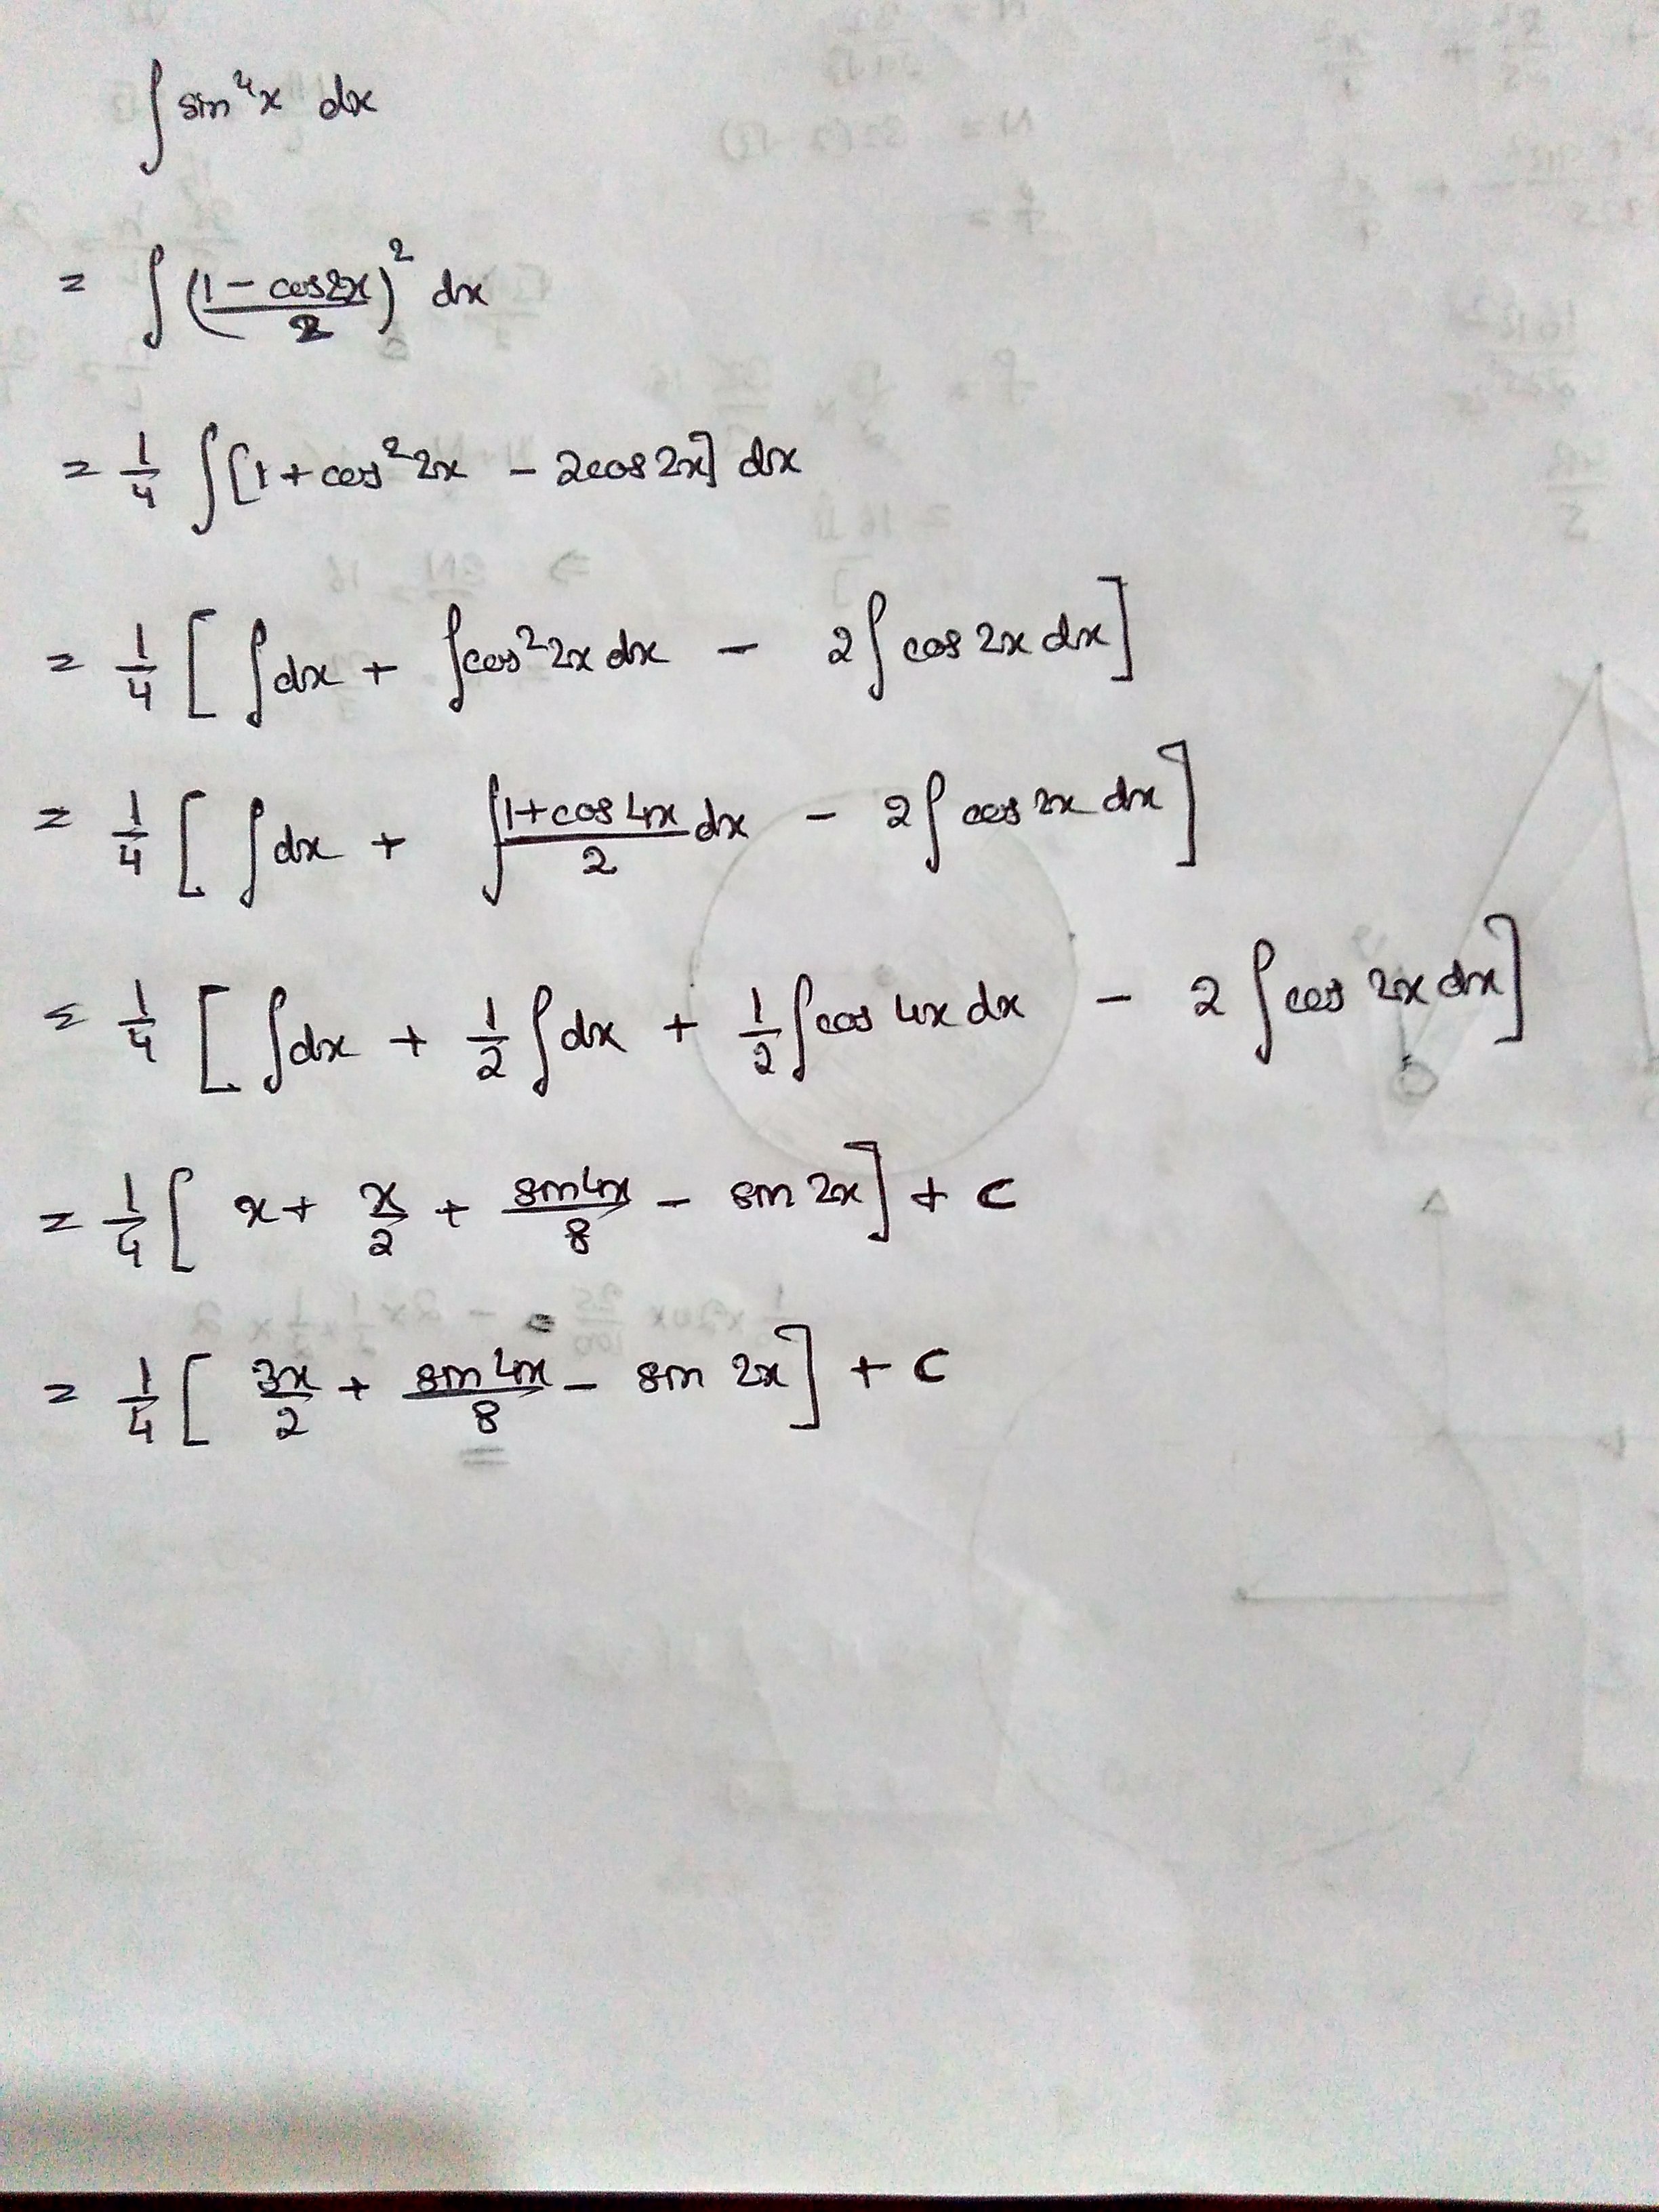 ∫ sin⁴x dx
= ∫ ((1 - cos2x)/2)² dx
= 1/4 ∫ [1 + cos²2x - 2cos2x] dx
= 1/4 [ ∫dx + ∫cos²2x dx - 2∫cos 2x dx ]
= 1/4 [ ∫dx + ∫(1+cos4x)/2 dx - 2∫cos 2x dx ]
= 1/4 [ ∫dx + 1/2 ∫dx + 1/2 ∫cos 4x dx - 2 ∫cos 2x dx ]
= 1/4 [ x + x/2 + sin4x/8 - sin 2x ] + c
= 1/4 [ 3x/2 + sin 4x/8 - sin 2x ] + c